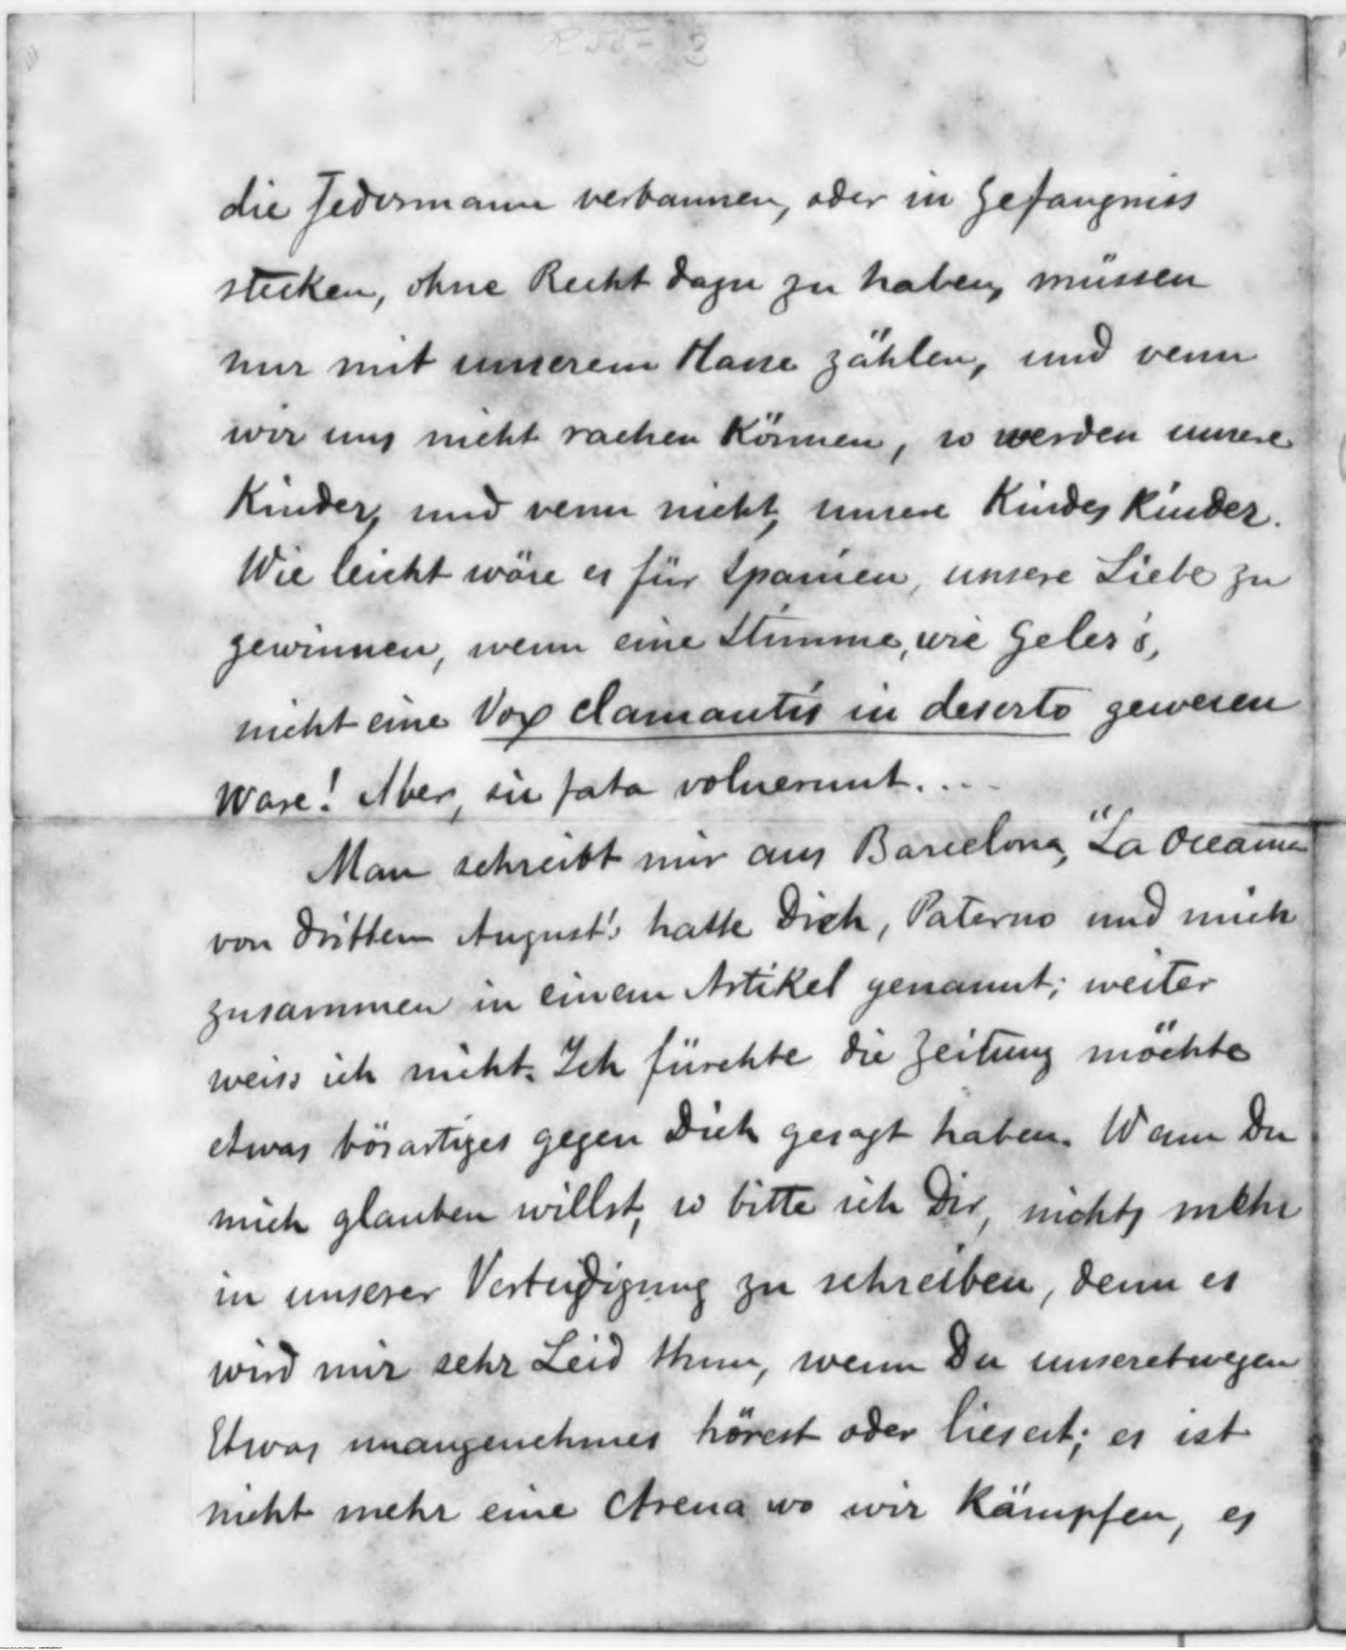 die Jedermann verbannen, oder in Gefangniss
stecken, ohne Recht dazu zu haben, müssen
nur mit unserem Hasse zählen, und venn
wir uns nicht rachen können, so werden unsere
Kinder, und venn nicht, unsere Kindeskinder.
Wie leicht wäre es für Spanien, unsere Liebe zu
gewinnen, wenn eine Stimme, wie Geler's,
nicht eine Vox clamantis in deserto gewesen
ware! Aber, sic fata voluerunt....
Man schreibt mir aus Barcelona, "La Oceania
von dritten August's hatte Dich, Paterno und mich
zusammen in einem Artikel genannt; weiter
weiss ich nicht. Ich fürchte die Zeitung möchte
etwas bösartiges gegen Dich gesagt haben. Wann Du
mich glauben willst, so bitte ich Dir, nichts mehr
in unserer Verteidigung zu schreiben, denn es
wird mir sehr Leid thun, wenn Du unseretwegen
Etwas unangenehmes hörest oder liesest; es ist
nicht mehr eine Arena wo wir kämpfen, es